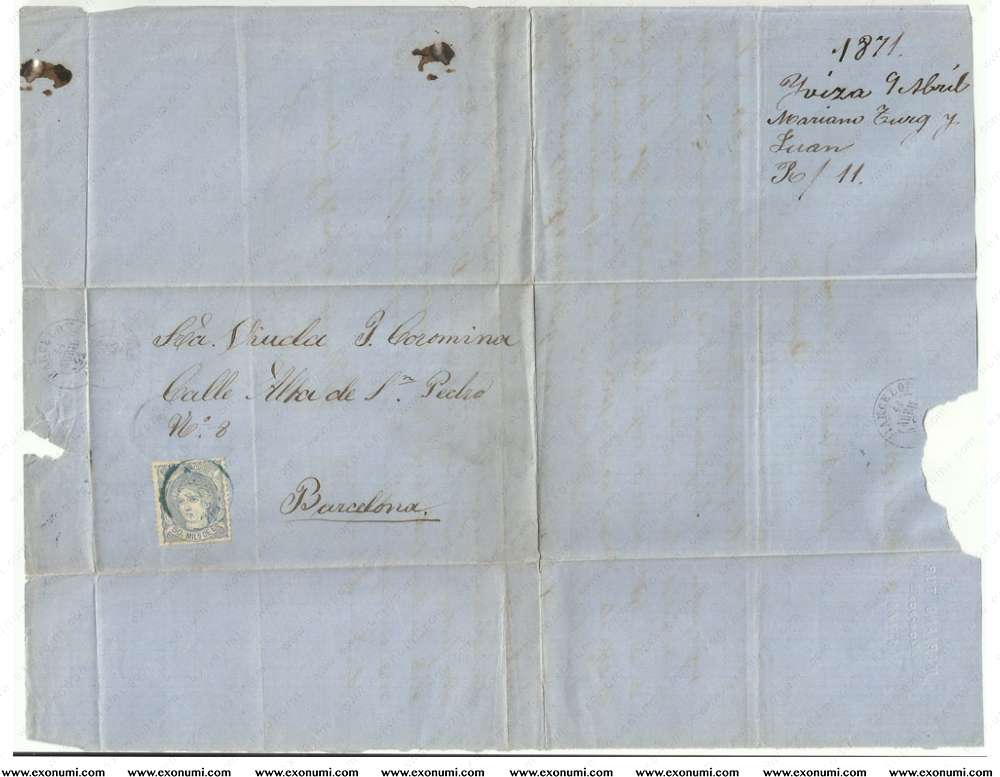 1871.
Yviza 9 Abril
Mariano Turq y
Juan
R/ 11.
Sra. Viuda J. Coromina
Calle Alta de Sn. Pedro
No. 8
MILS DE E
Barcelona.
BARCELO
www.exonumi.com www.exonumi.com www.exonumi.com www.exonumi.com www.exonumi.com www.exonumi.com www.exonumi.com www.exonumi.com